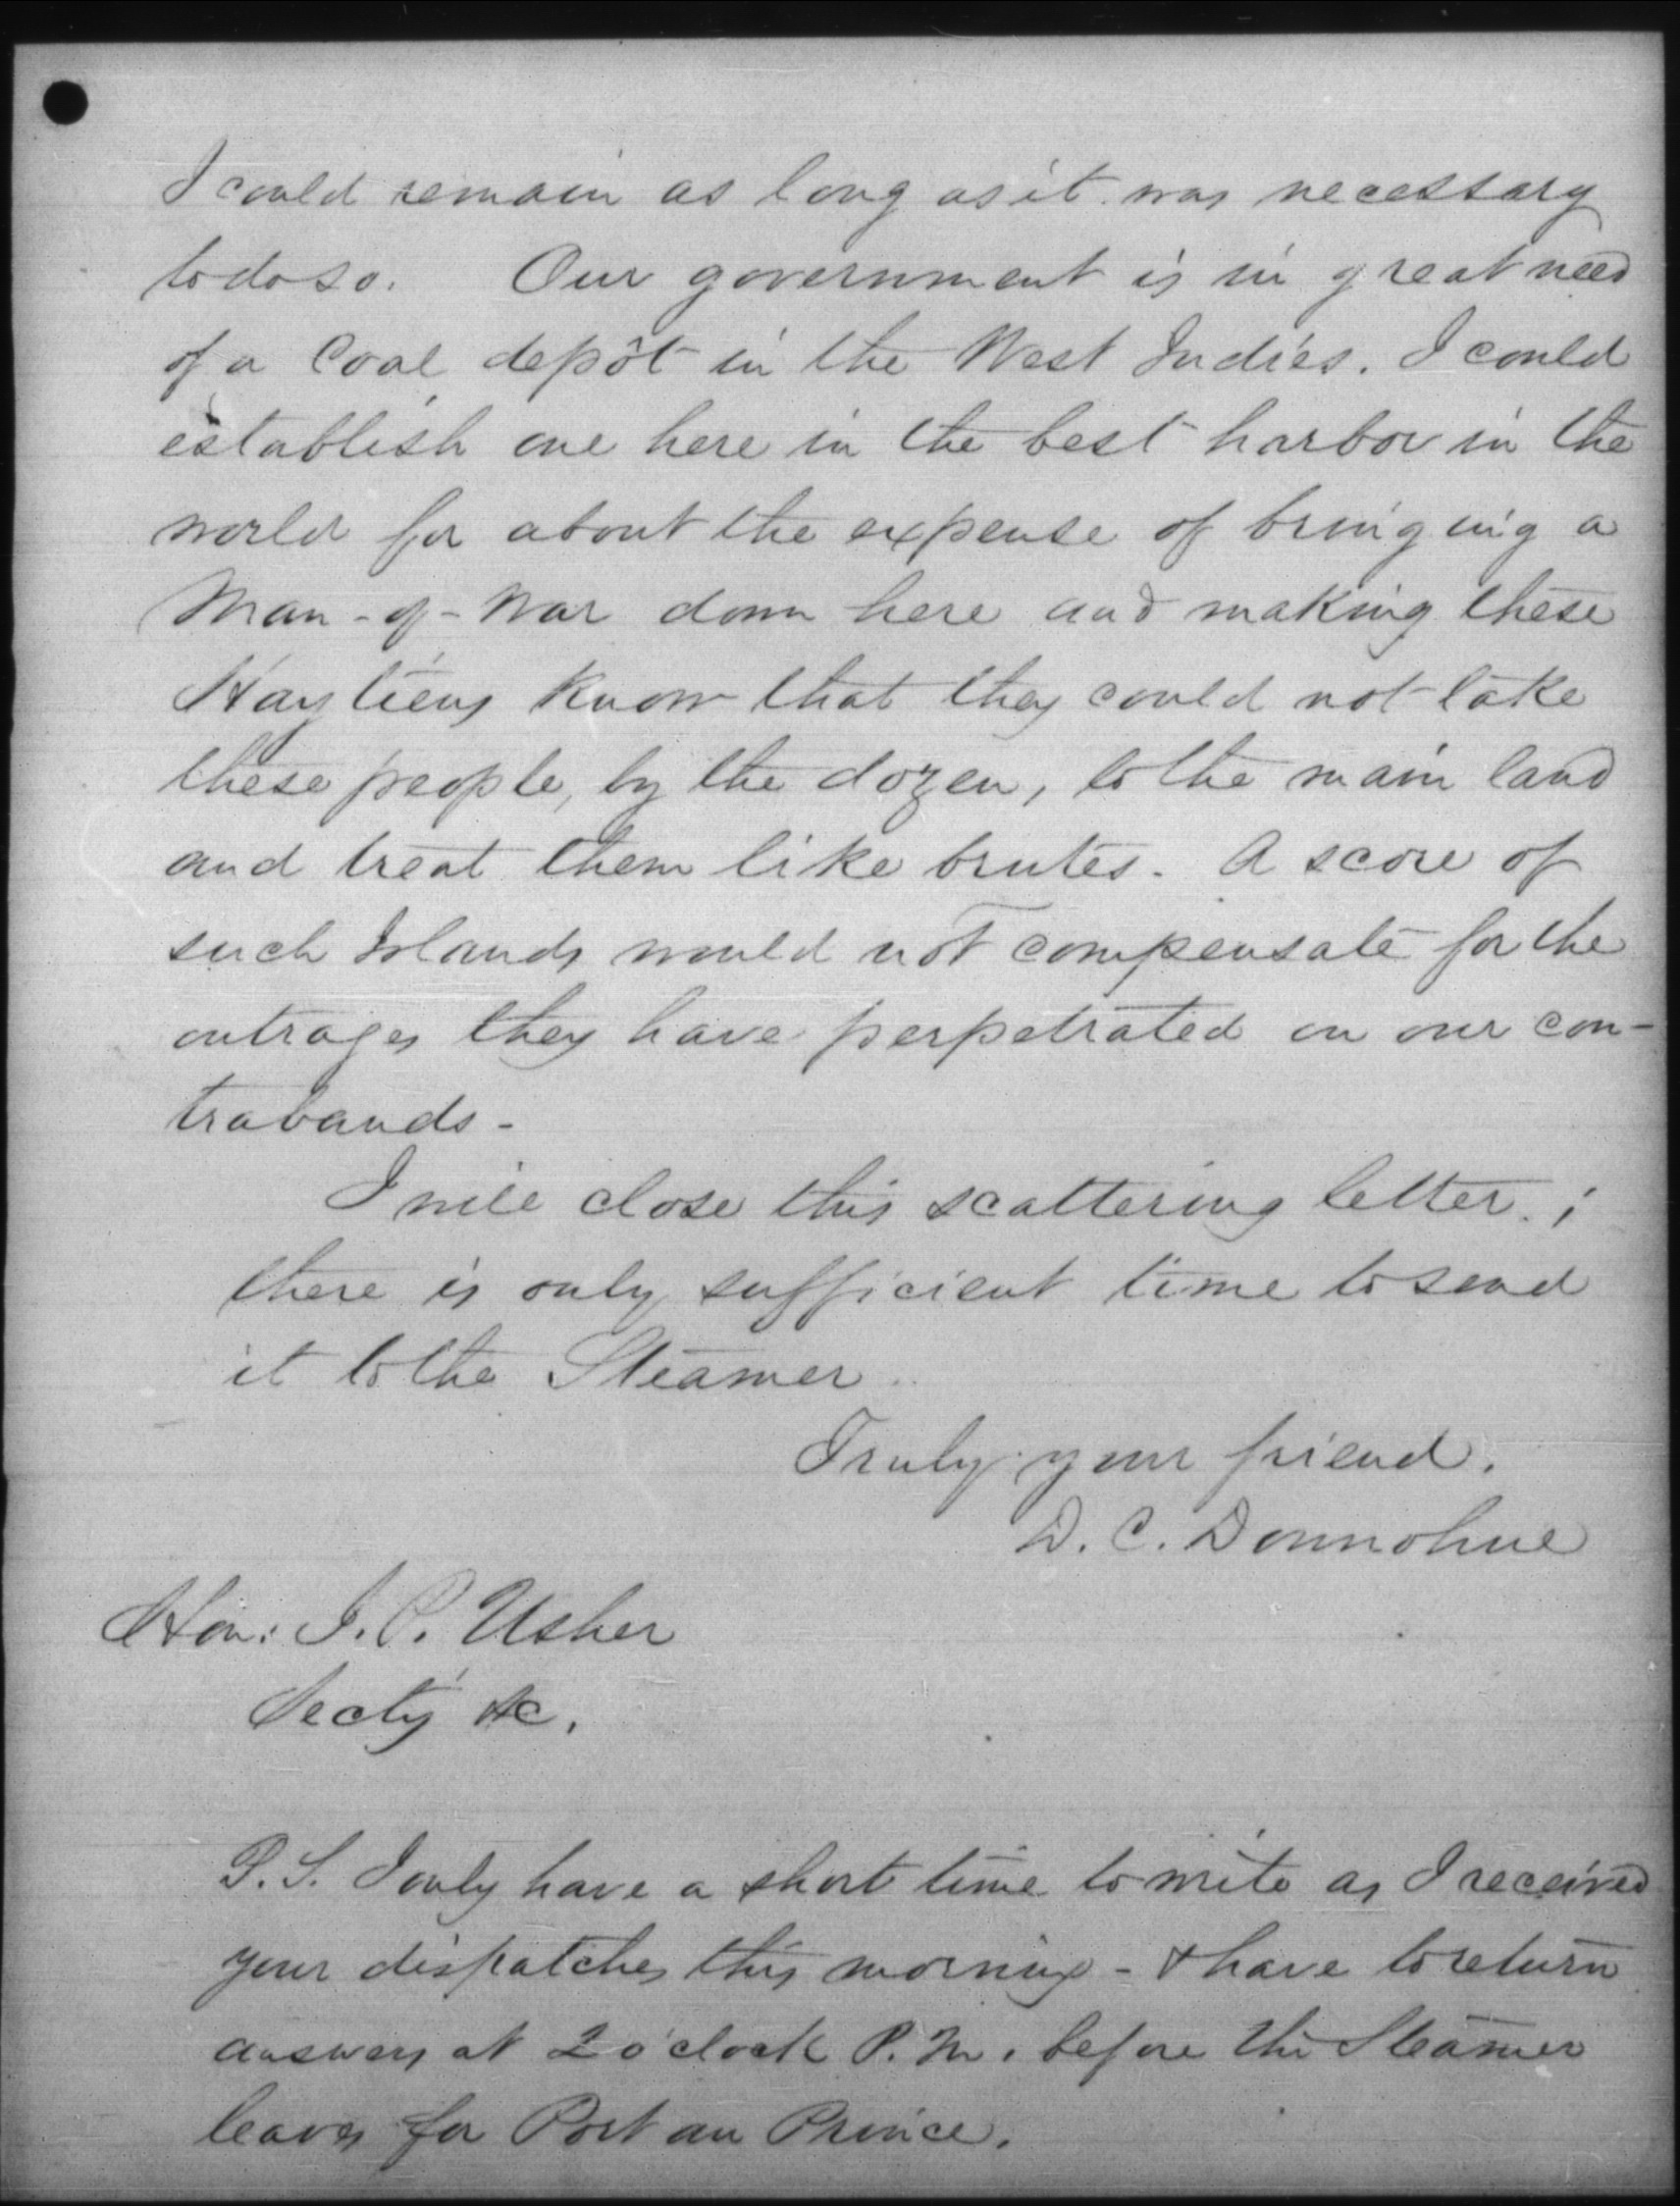 I could remain as long as it was necessary
to do so. Our government is in great need
of a Coal depôt in the West Indies. I could
establish one here in the best harbor in the
world for about the expense of bringing a
Man-of-War down here and making these
Haytiens know that they could not take
these people, by the dozen, to the main land
and treat them like brutes. A score of
such Islands would not compensate for the
outrages they have perpetrated on our con-
trabands-
I will close this scattering letter;
there is only sufficient time to send
it to the Steamer.
Truly your friend.
D. C. Donnohue
Hon: J. P. Usher
Secty &c.
P.S. I only have a short time to write as I received
your dispatches this morning - & have to return
answers at 2 o'clock P.M. before the Steamer
leaves for Port au Prince.